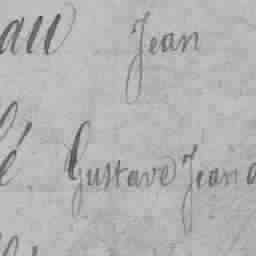 au Jean
é Gustave Jean